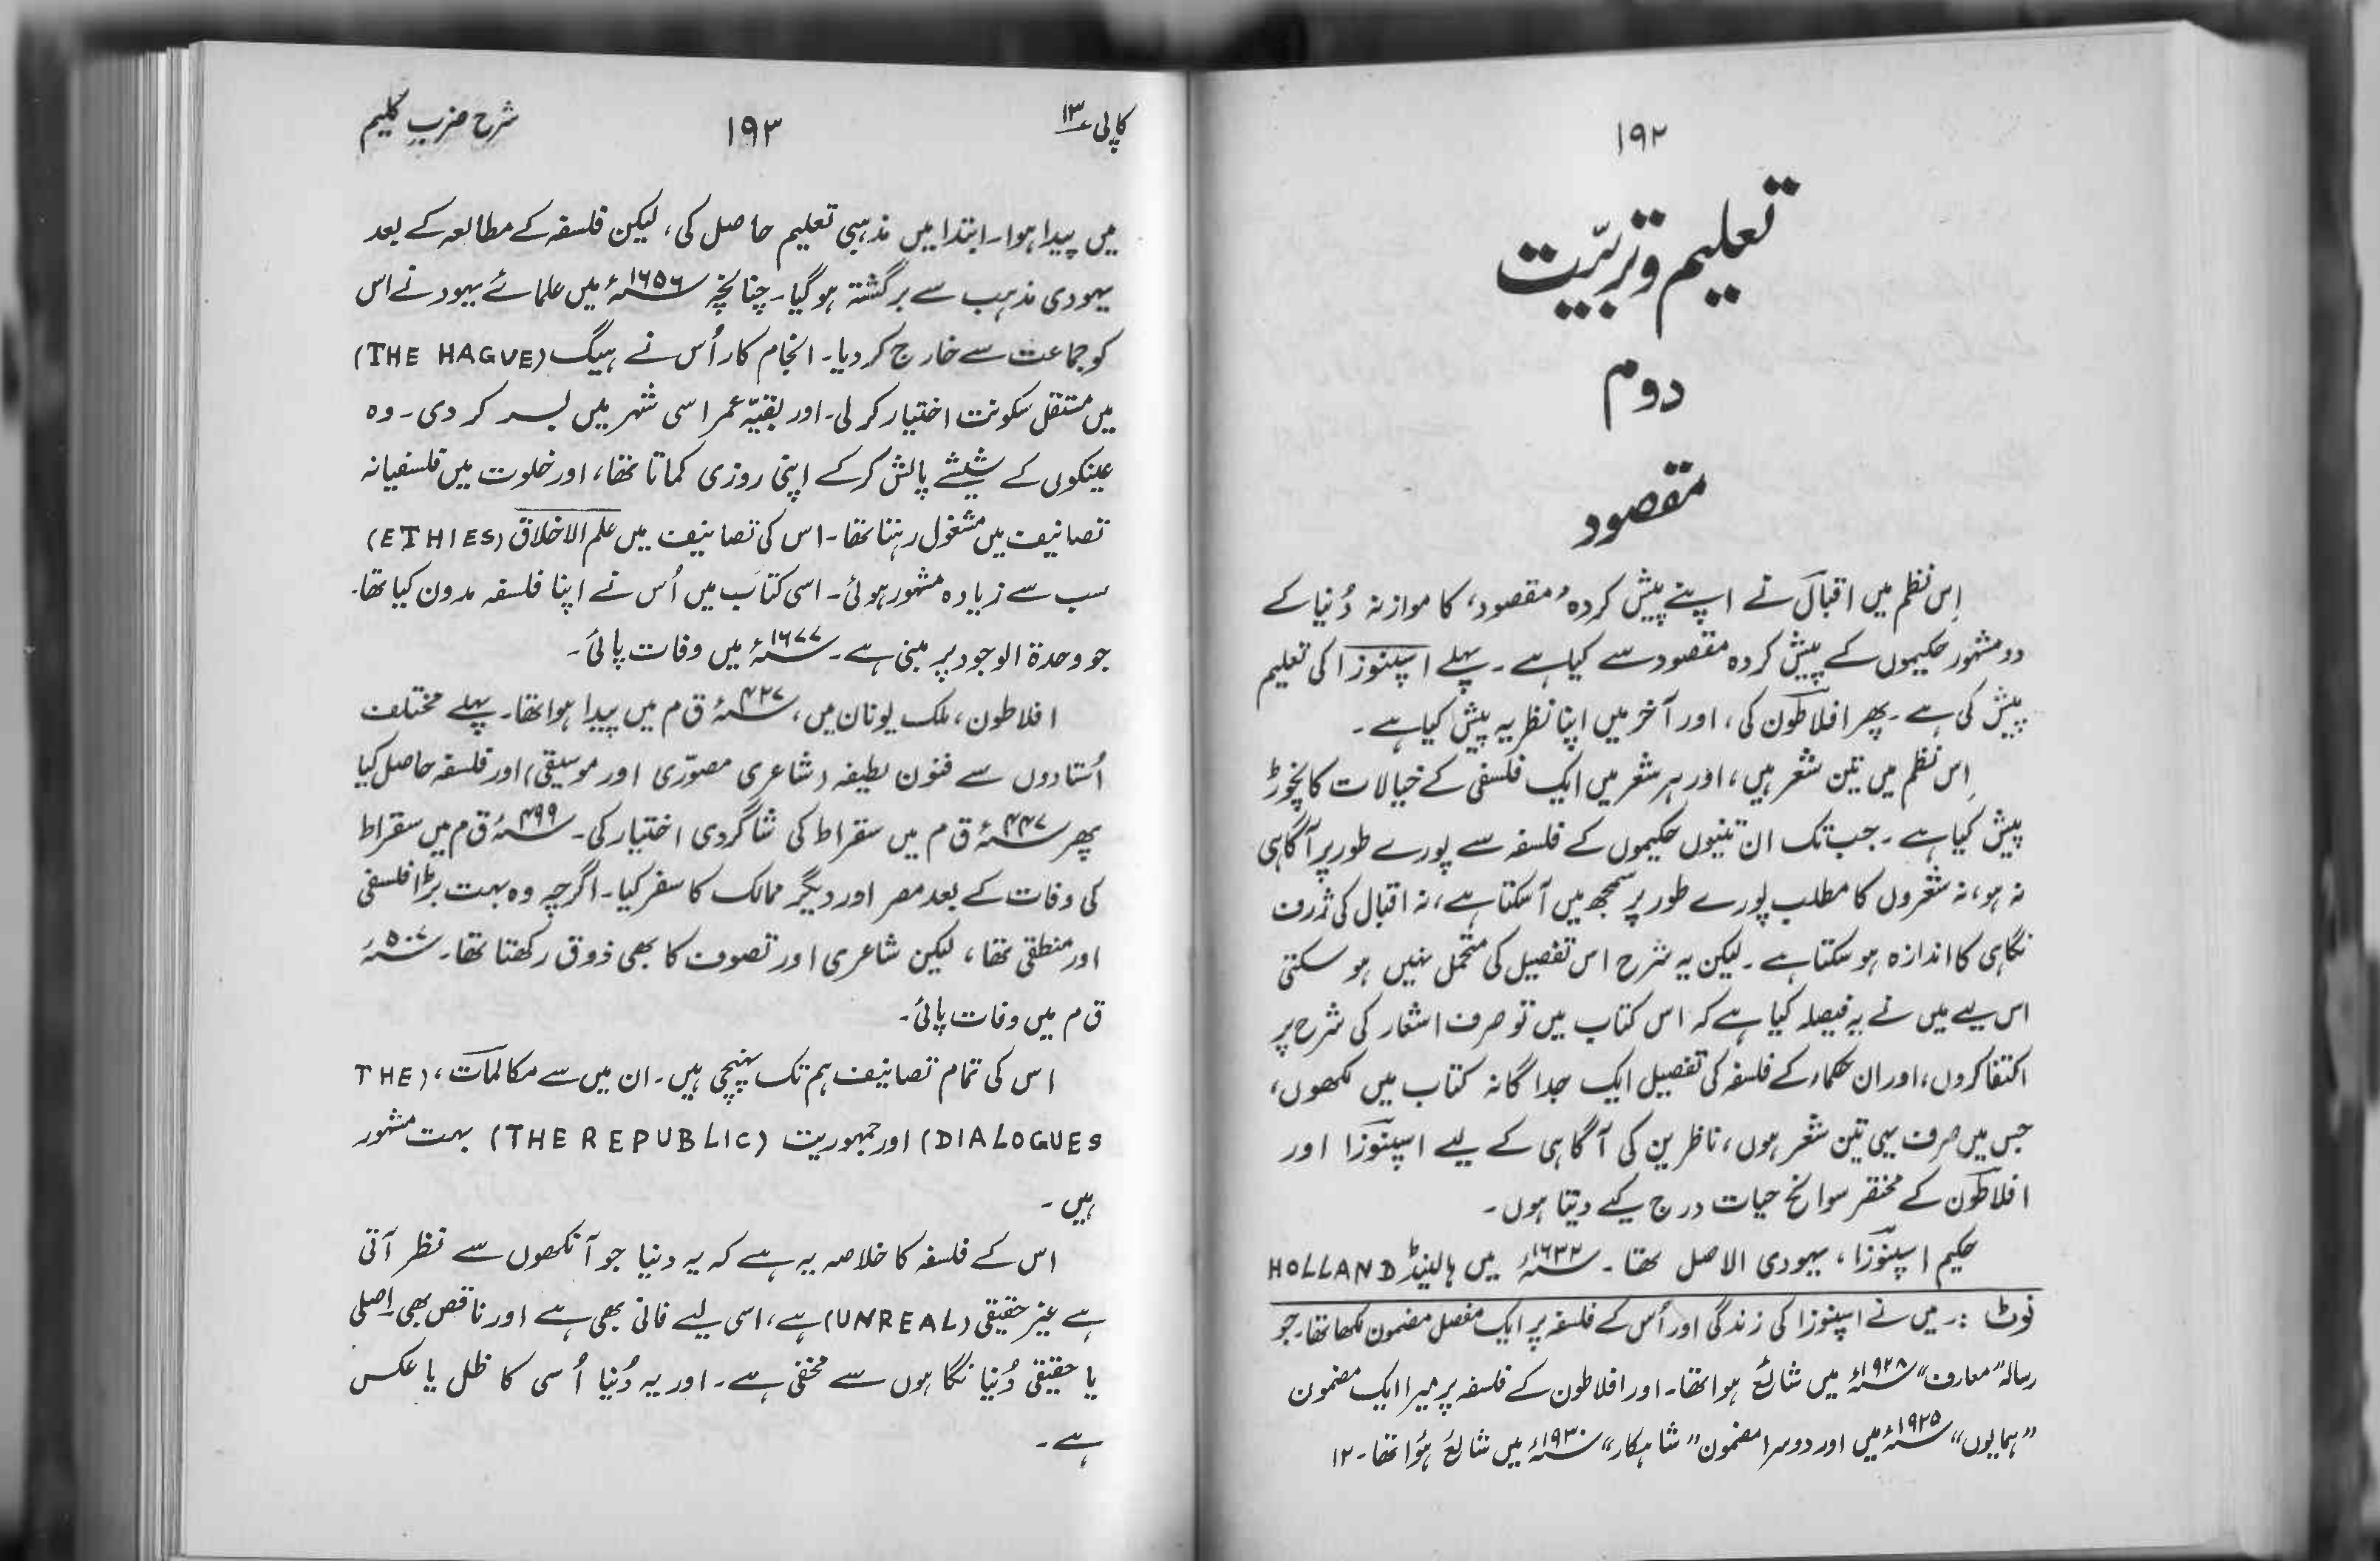 ۱۹۲
تعلیم و تربیّت
دوم
مقصود
اِس نظم میں اقبالؔ نے اپنے پیش کردہ ’مقصود‘ کا موازنہ دُنیا کے
دو مشہور حکیموں کے پیش کردہ مقصود سے کیا ہے۔ پہلے اسپنوزا کی تعلیم
پیش کی ہے۔ پھر افلاطون کی، اور آخر میں اپنا نظریہ پیش کیا ہے۔
اِس نظم میں تین شعر ہیں، اور ہر شعر میں ایک فلسفی کے خیالات کا نچوڑ
پیش کیا ہے۔ جب تک ان تینوں حکیموں کے فلسفہ سے پورے طور پر آگاہی
نہ ہو، نہ شعروں کا مطلب پورے طور پر سمجھ میں آسکتا ہے، نہ اقبال کی ژرف
نگاہی کا اندازہ ہو سکتا ہے۔ لیکن یہ شرح اس تفصیل کی متحمل نہیں ہو سکتی
اس لیے میں نے یہ فیصلہ کیا ہے کہ اس کتاب میں تو صرف اشعار کی شرح پر
اکتفا کروں، اور ان حکماء کے فلسفہ کی تفصیل ایک جداگانہ کتاب میں لکھوں،
جس میں صرف یہی تین شعر ہوں، ناظرین کی آگاہی کے لیے اسپنوزا اور
افلاطون کے مختصر سوانح حیات درج کیے دیتا ہوں۔
حکیم اسپنوزا، یہودی الاصل تھا۔ ۱۶۳۲ء میں ہالینڈ HOLLAND
نوٹ :۔ میں نے اسپنوزا کی زندگی اور اُس کے فلسفہ پر ایک مفصل مضمون لکھا تھا۔ جو
رسالہ ”معارف“ ۱۹۲۸ء میں شائع ہوا تھا۔ اور افلاطون کے فلسفہ پر میرا ایک مضمون
”ہمایوں“ ۱۹۲۵ء میں اور دوسرا مضمون ”شاہکار“ ۱۹۳۰ء میں شائع ہؤا تھا۔ ۱۲
کاپی ۱۳ ۱۹۳ شرح ضربِ کلیم
میں پیدا ہوا۔ ابتدا میں مذہبی تعلیم حاصل کی، لیکن فلسفہ کے مطالعہ کے بعد
یہودی مذہب سے برگشتہ ہو گیا۔ چنانچہ ۱۶۵۶ء میں علمائے یہود نے اس
کو جماعت سے خارج کر دیا۔ انجام کار اُس نے ہیگ (THE HAGUE)
میں مستقل سکونت اختیار کر لی۔ اور بقیّہ عمر اسی شہر میں بسر کر دی۔ وہ
عینکوں کے شیشے پالش کر کے اپنی روزی کماتا تھا، اور خلوت میں فلسفیانہ
تصانیف میں مشغول رہتا تھا۔ اس کی تصانیف میں علم الاخلاق (ETHIES)
سب سے زیادہ مشہور ہوئی۔ اسی کتاب میں اُس نے اپنا فلسفہ مدون کیا تھا۔
جو وحدۃ الوجود پر مبنی ہے۔ ۱۶۷۷ء میں وفات پائی۔
افلاطون، ملک یونان میں، ۴۲۷ء ق م میں پیدا ہوا تھا۔ پہلے مختلف
اُستادوں سے فنون لطیفہ (شاعری مصوّری اور موسیقی) اور فلسفہ حاصل کیا
پھر ۴۴۷ء ق م میں سقراط کی شاگردی اختیار کی۔ ۴۹۹ء ق م میں سقراط
کی وفات کے بعد مصر اور دیگر ممالک کا سفر کیا۔ اگرچہ وہ بہت بڑا فلسفی
اور منطقی تھا، لیکن شاعری اور تصوف کا بھی ذوق رکھتا تھا۔ ۵۰۷ء
ق م میں وفات پائی۔
اس کی تمام تصانیف ہم تک پہنچی ہیں۔ ان میں سے مکالمات، (THE
DIALOGUES) اور جمہوریت (THE REPUBLIC) بہت مشہور
ہیں۔
اس کے فلسفہ کا خلاصہ یہ ہے کہ یہ دنیا جو آنکھوں سے نظر آتی
ہے غیر حقیقی (UNREAL) ہے، اسی لیے فانی بھی ہے اور ناقص بھی۔ اصلی
یا حقیقی دُنیا نگاہوں سے مخفی ہے۔ اور یہ دُنیا اُسی کا ظل یا عکس
ہے۔